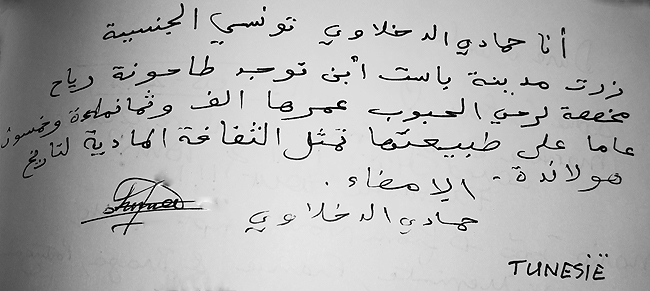 أنا حمادي الدخلاوي تونسي الجنسية
زرت مدينة ياست أين توجد طاحونة رياح
مخصصة لرحي الحبوب عمرها الف وثمانمائة وخمسون
عاما على طبيعتها تمثل الثقافة المادية لتاريخ
هولاندة - الإمضاء .
حمادي الدخلاوي
TUNESIË